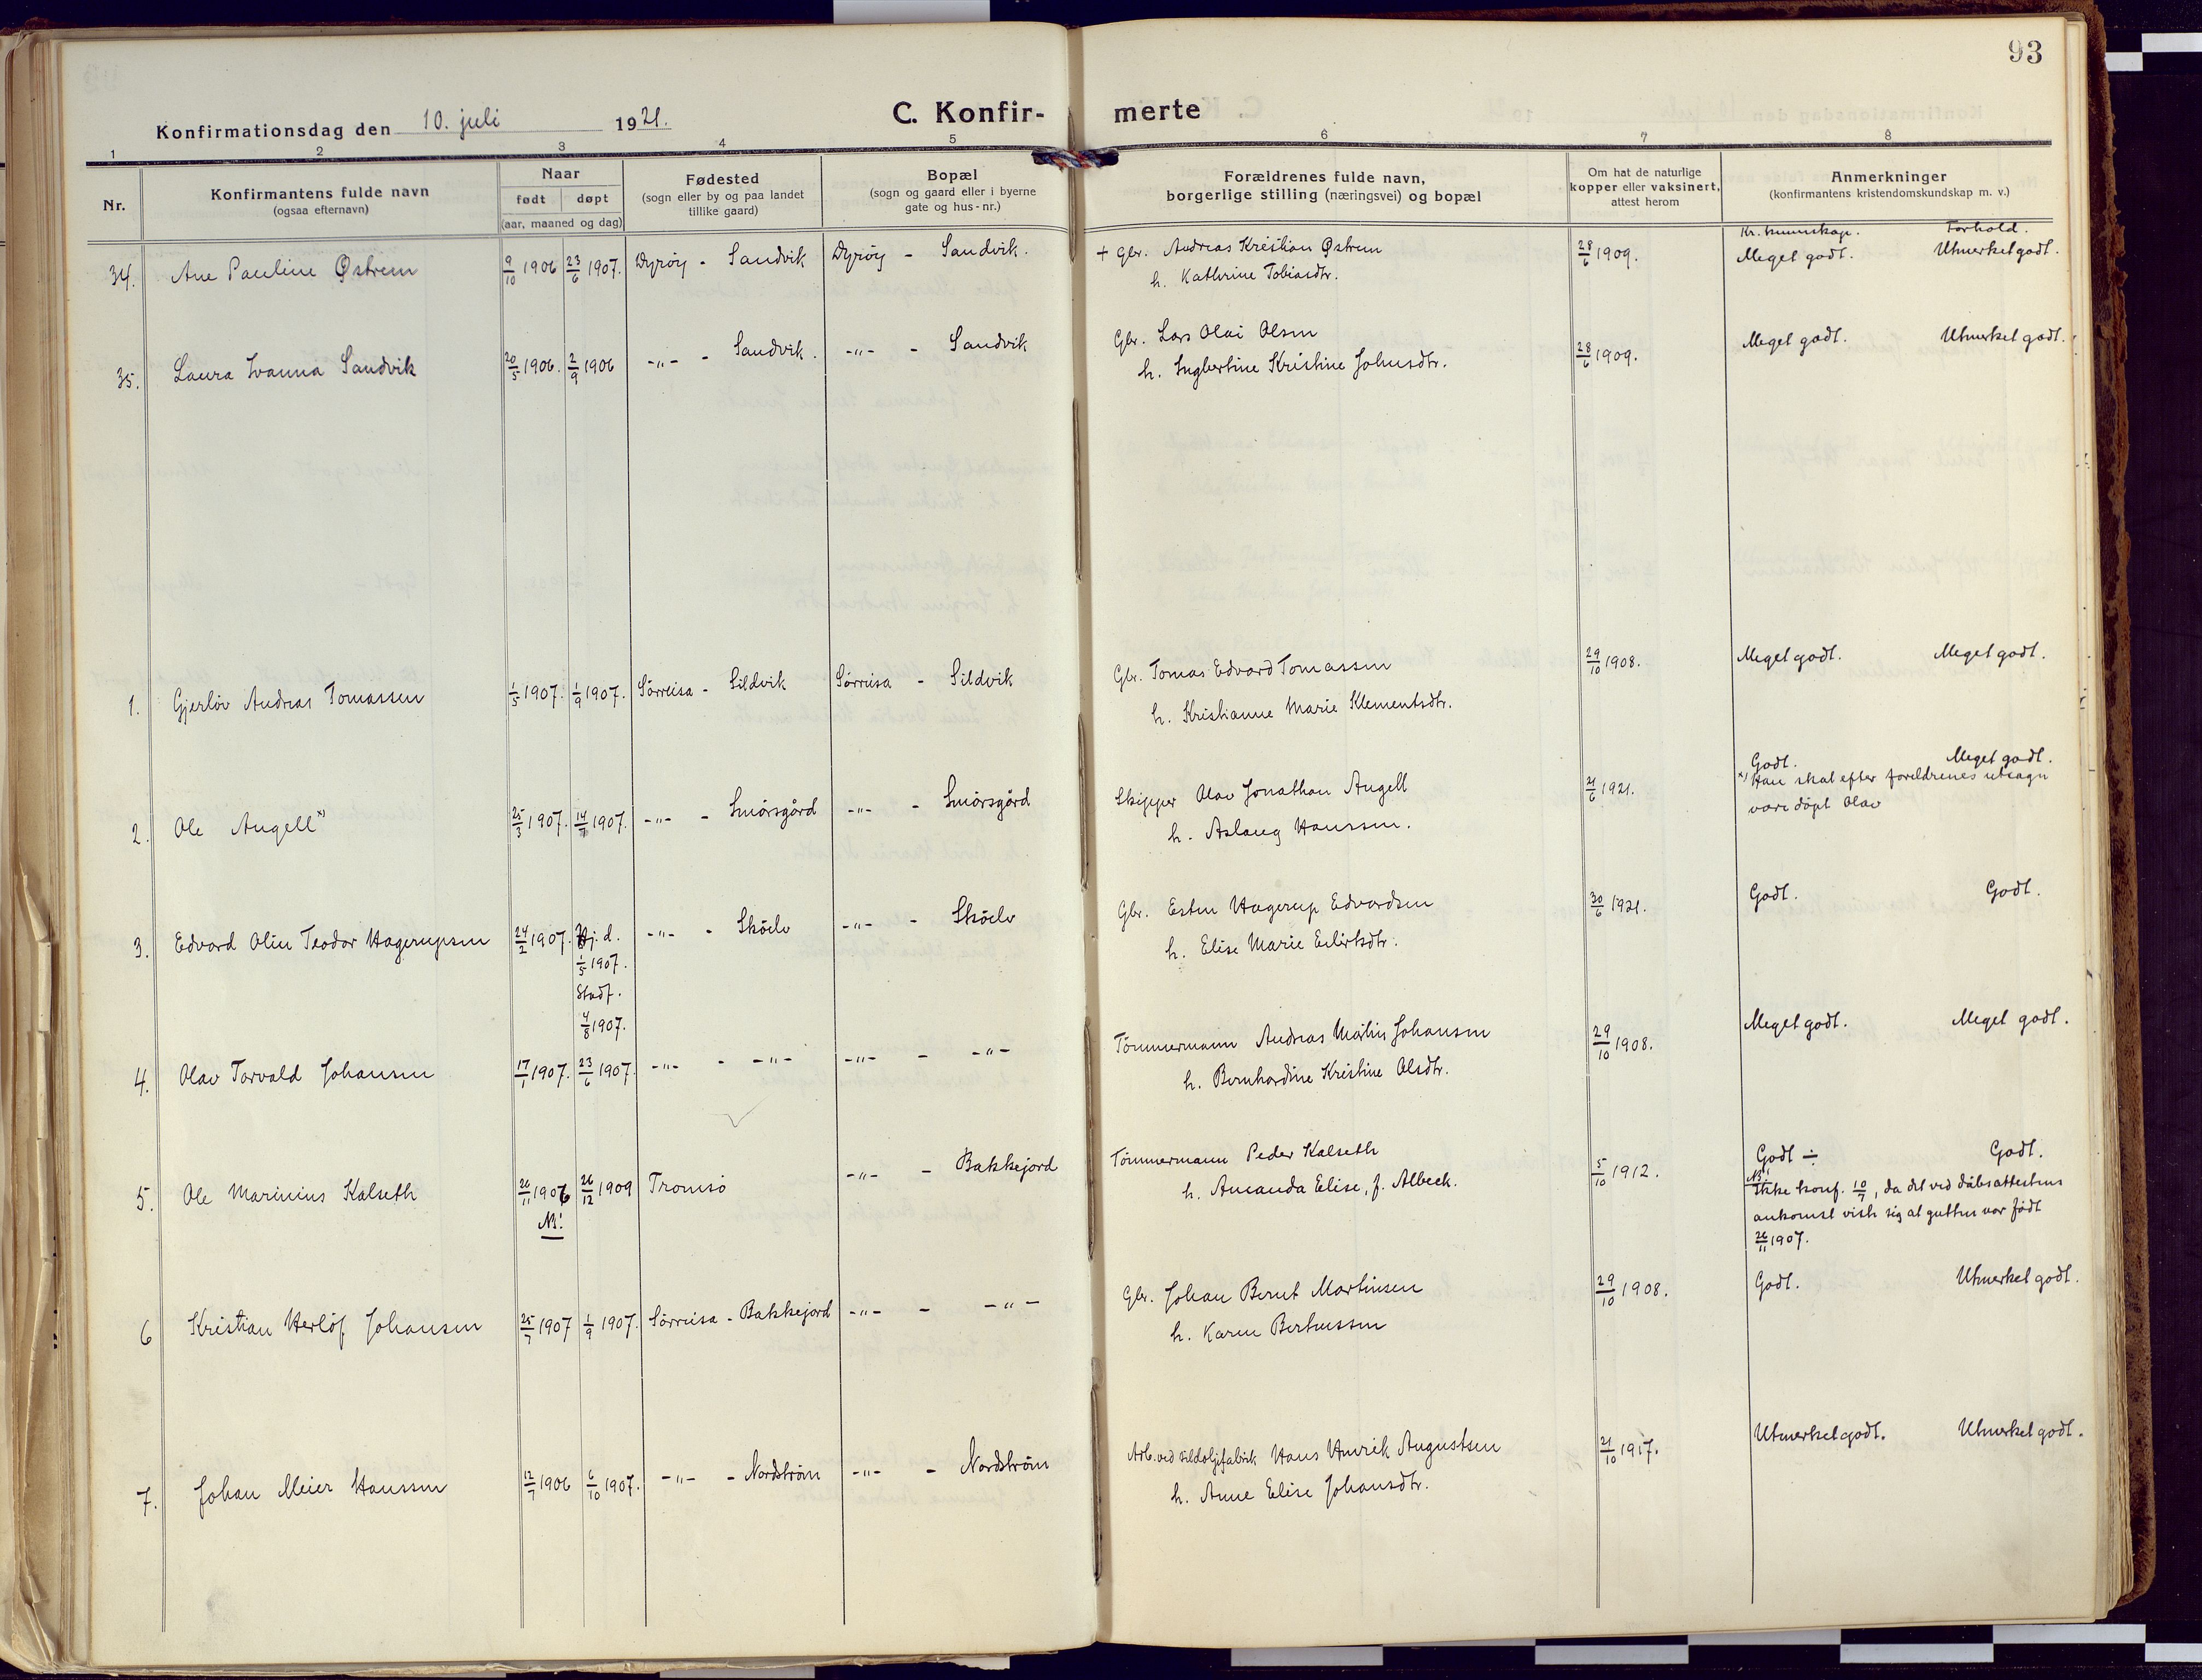 93
Konfirmationsdag den 10. juli 1921.
C. Konfir- merte
1 2 3 4 5 6 7 8
Nr.
Konfirmantens fulde navn
(ogsaa efternavn)
Naar
født døpt
(aar, maaned og dag)
Fødested
(sogn eller by og paa landet
tillike gaard)
Bopæl
(sogn og gaard eller i byerne
gate og hus-nr.)
Forældrenes fulde navn,
borgerlige stilling (næringsvei) og bopæl
Om hat de naturlige
kopper eller vaksinert,
attest herom
Anmerkninger
(konfirmantens kristendomskundskap m. v.)
Kr. kunnskap. Forhold.
34. Ane Pauline Østrem 9/10 1906 23/6 1907. Dyröy - Sandvik Dyröy - Sandvik. + Gbr. Andreas Kristian Østrem 28/6 1909. Meget godt. Utmerket godt.
h. Kathrine Tobiasdtr.
35. Laura Ivanna Sandvik 20/5 1906. 2/9 1906 -"- - Sandvik. -"- - Sandvik Gbr. Lars Olai Olsen 28/6 1909. Meget godt. Utmerket godt.
h. Ingbertine Kristine Johnsdtr.
1. Gjerlöv Andreas Tomassen 1/5 1907. 1/9 1907. Sörreisa - Sildvik Sörreisa - Sildvik Gbr. Tomas Edvard Tomassen 29/10 1908. Meget godt. Meget godt.
h. Kristianne Marie Klementsdtr.
2. Ole Angell x) 25/3 1907. 14/7 1907. -"- - Smörsgård -"- - Smörsgård Skipper Olav Jonathan Angell 21/6 1921. Godt. Meget godt.
h. Aslaug Hanssen.
x) Han skal efter foreldrenes utsagn
være döpt Olav
3. Edvard Olin Teodor Hagerupsen 24/2 1907. Hj. d. -"- - Sköelv -"- - Sköelv Gbr. Esten Hagerup Edvardsen 30/6 1921. Godt. Godt.
1/5 1907.
Stadf.
4/8 1907.
h. Elise Marie Eilertsdtr.
4. Olav Torvald Johansen 17/1 1907. 23/6 1907. -"- - -"- -"- - -"- Tömmermann Andreas Martin Johansen 29/10 1908. Meget godt. Meget godt.
h. Bernhardine Kristine Olsdtr.
5. Ole Marinius Kalseth 26/11 1906 26/12 1909 Tromsö -"- - Bakkejord Tömmermann Peder Kalseth 5/10 1912. Godt ÷ Godt.
NB!
h. Amanda Elise, f. Albeck.
NB! Ikke konf. 10/7, da det ved dåbsattestens
ankomst viste sig at gutten var född
26/11 1907.
6 Kristian Herlöf Johansen 25/7 1907 1/9 1907. Sörreisa - Bakkejord -"- - -"- Gbr. Johan Bernt Martinsen 29/10 1908. Godt. Utmerket godt.
h. Karen Berteussen
7. Johan Meier Hanssen 12/7 1906 6/10 1907. -"- - Nordström -"- - Nordström Arb. ved sildoljefabrik Hans Henrik Augustsen 21/10 1917. Utmerket godt. Utmerket godt.
h. Anne Elise Johansdtr.